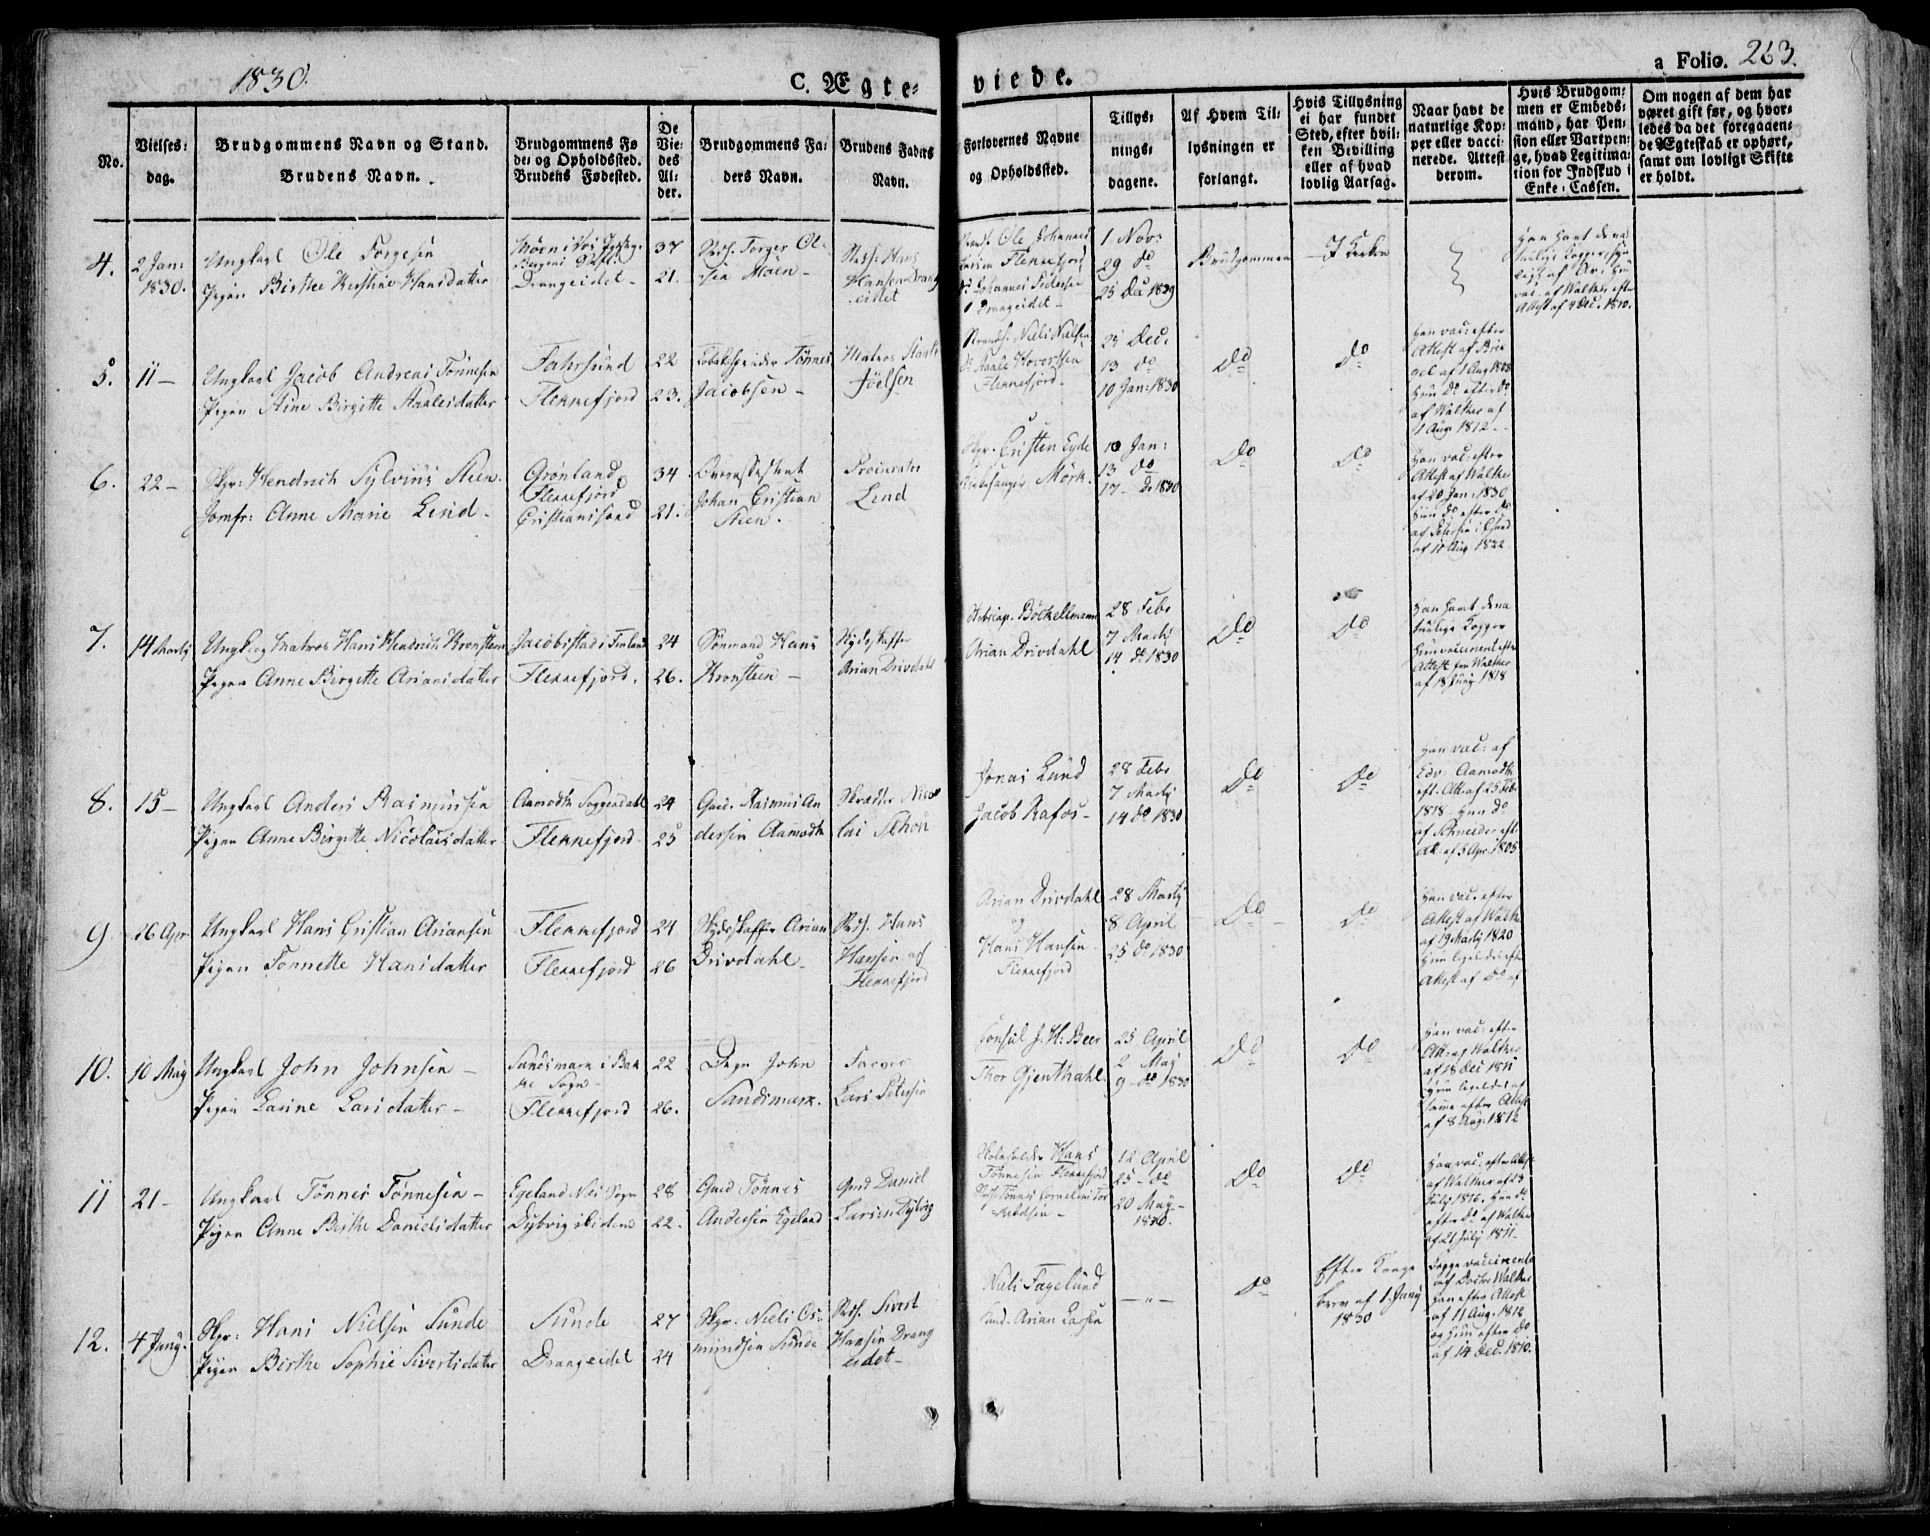 1830.
C. Ægte-
viede.
a Folio. 263.
No.
Vielses-
dag.
Brudgommens Navn og Stand.
Brudens Navn.
Brudgommens Fø
de- og Opholdssted.
Brudens Fødested.
De
Vie-
des
Al-
der.
Brudgommens Fa-
ders Navn.
Brudens Faders
Navn.
Forlovernes Navne
og Opholdssted.
Tillys-
nings-
dagene.
Af Hvem Til-
lysningen er
forlangt.
Hvis Tillysning
ei har fundet
Sted, efter hvil-
ken Bevilling
eller af hvad
lovlig Aarsag.
Naar havt de
naturlige Kop-
per eller vacci-
nerede. Attest
derom.
Hvis Brudgom-
men er Embeds-
mand, har Pen-
sion eller Vartpen-
ge, hvad Legitima-
tion for Indskud i
Enke-Cassen.
Om nogen af dem har
været gift før, og hvor-
ledes da det foregaaen-
de Ægteskab er ophørt,
samt om lovligt Skifte
er holdt.
4.
2 Jan:
1830.
Ungkarl Ole Torgesen
Pigen Birthe Kirstine Hansdatter
Drangeidet
37
21.
Torger Ol-
sen Moen
Hans
Hansen Drang
eidet
Ole Johannes
Flekkefjord
Johannes Pedersen
Drangeidet
1 Nov:
29 do
25 Dec 1829
Brudgommen
I Kirken
Han havt de na
turlige Kopper
Attest af 4 Dec. 1810.
5.
11 –
Ungkarl Jacob Andreas Tønnesen
Pigen Stine Birgitte Staalesdatter
Fahrsund
Flekkefjord
22
23.
Tønnes
Jacobsen
Matros Staale
Joelsen
Niels Nielsen
Flekkefjord
25 Dec.
13 do
10 Jan: 1830
Do
Do
Han vac: efter
Attest af
Hun Do efter Do
af Walker af
1 Aug 1812
6.
22 –
Skpr: Hendrich Sylvius Steen
Jomfr: Anne Marie Lind
Grønland
Flekkefjord
Cristianssand
34
21.
Johan Cristian
Steen.
Procurator
Lind
Cristen Eyde
Mørk.
10 Jan:
13 do
17 – do 1830
Do
Do
Han vac: efter
Attest af Walker
af 20 Jan: 1830
Hun Do efter Do
af 11 Aug 1822
7.
14 Martj
Ungkarl Matros Hans Hendrich Kronsteen
Pigen Anne Birgitte Ariansdatter
Jacobsstad i Finland
Flekkefjord.
24
26.
Sømand Hans
Kronsteen –
Skydsskaffer
Arian Drivdahl
Bøckellmann
Arian Drivdahl
28 Febr
7 Martj
14 do 1830
Do
Do
Han havt de na
turlige Kopper
Hun vaccineret efter
Attest fra Walker
af 18 Junj 1818
8.
15 –
Ungkarl Anders Rasmussen
Pigen Anne Birgitte Nicolaisdatter
Aamodt Soggendahl
Flekkefjord
24
25
Gmd. Rasmus An
dersen Aamodt
Skræder Nico
lai Schou
Jonas Lund
Jacob Rafos
28 Febr
7 Martj
14 do 1830
Do
Do
Han vac: af
Edv: Aamodt
eft. Att. af 25 Febr
1818 Hun do
af Schneider eft
Att. af 5 Apr. 1805
9.
26 Apr
Ungkarl Hans Cristian Ariansen
Pigen Tonnette Hansdatter
Flekkefjord
Flekkefjord
24
26
Skydsskaffer Arian
Drivdahl
Hans
Hansen af
Flekkefjord
Arian Drivdahl
og
Hans Hansen
Flekkefjord
28 Martj
8 April
25 do 1830
Do
Do
Han vac: efter
Attest af Walk
af 19 Martj 1820
Hun ligeledes eft
Attest af Do af
10.
10 Maij
Ungkarl John Johnsen –
Pigen Larine Larsdatter –
Sandsmark i Bak
ke Sogn
Flekkefjord
22
26.
John
Sandsmark.
Lars Petersen
Consul J. H: Beer
Thor Gjenthahl
25 April
2 Maij
9 – do 1830
Do
Do
Han vac: efter
Att: af Walker
af 18 Dec 1811
Hun ligeledes af
samme efter Attest
af 8 Aug. 1812
11
21 –
Ungkarl Tønnes Tønnesen –
Pigen Anne Birthe Danielsdatter
Egeland Næs Sogn
Dybvig ibidem
28
22.
Gmd Tønnes
Andersen Egeland
Gmd Daniel
Larsen Dybvig
Hans
Tønnesen Flekkefjord
Tønnes Cornelius Tor
kildsen
12 April
25 – do
20 Maij –
1830.
Do
Do
Han vac: efter Attest
af Walker af 23
July 1816. Hun do
efter Do af Walker
af 21 July 1811
12.
4 Junj.
Skpr: Hans Nielsen Sunde
Pigen Birthe Sophie Sivertsdatter
Sunde
Drangeidet
27
24
Skpr: Niels Os-
mundsen Sunde
Sivert
Hansen Drang
eidet –
Niels Fagelund
Arian Larsen
– " –
Do
Efter Konge
brev af 1. Junj
1830
Begge vaccinerede
af Doctor Walker
Han efter Attest
af 11 Aug. 1812
og Hun efter Do
af 14 Dec. 1810.